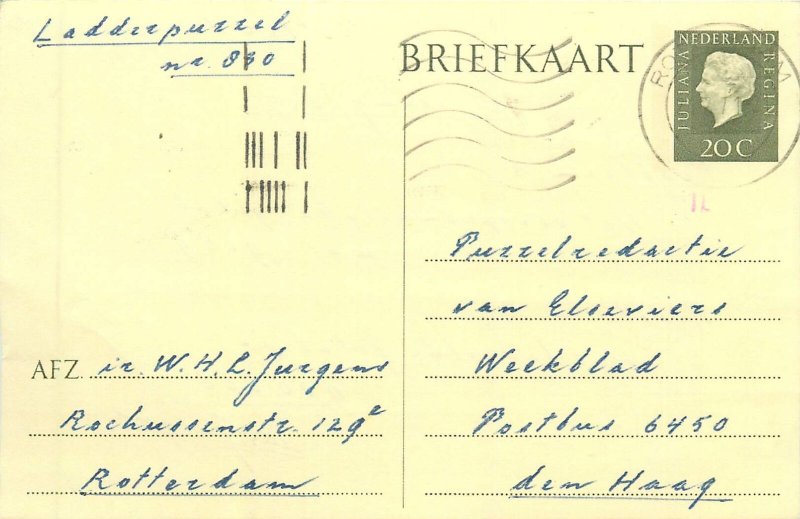 Ladderpuzzel
nr. 830
BRIEFKAART
NEDERLAND
JULIANA
REGINA
20 C
Puzzelredactie
van Elseviers
Weekblad
Postbus 6450
den Haag
AFZ ir. W. H. L. Jurgens
Rochussenstr. 129²
Rotterdam